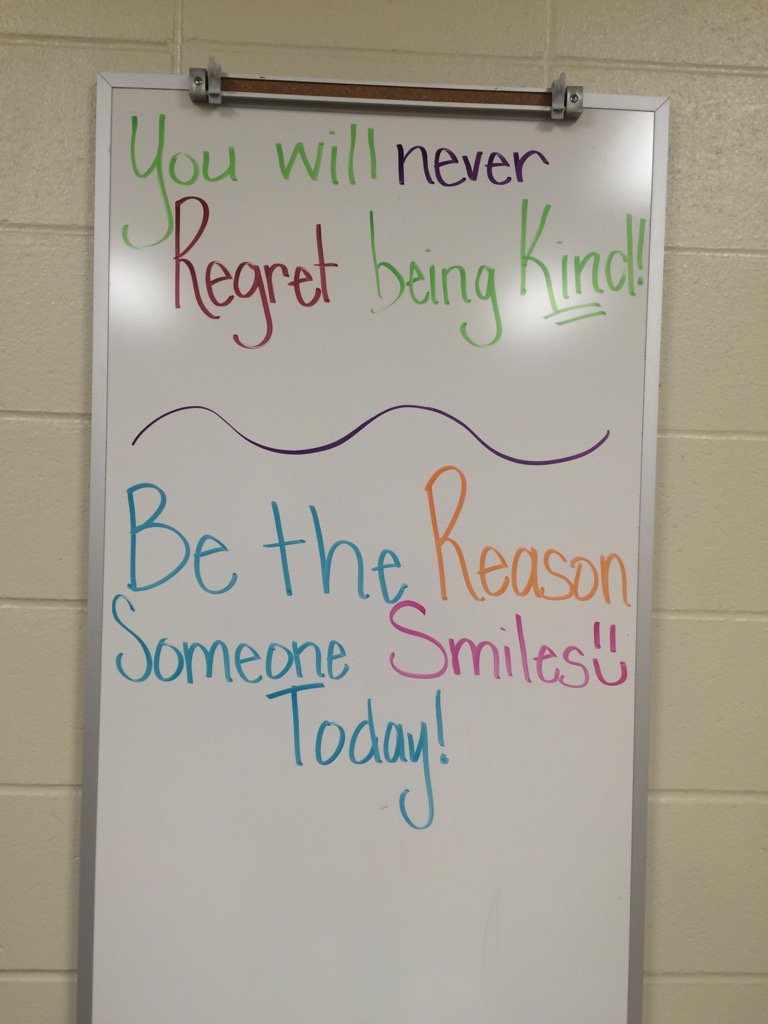 You will never
Regret being Kind!
Be the Reason
Someone Smiles
Today!